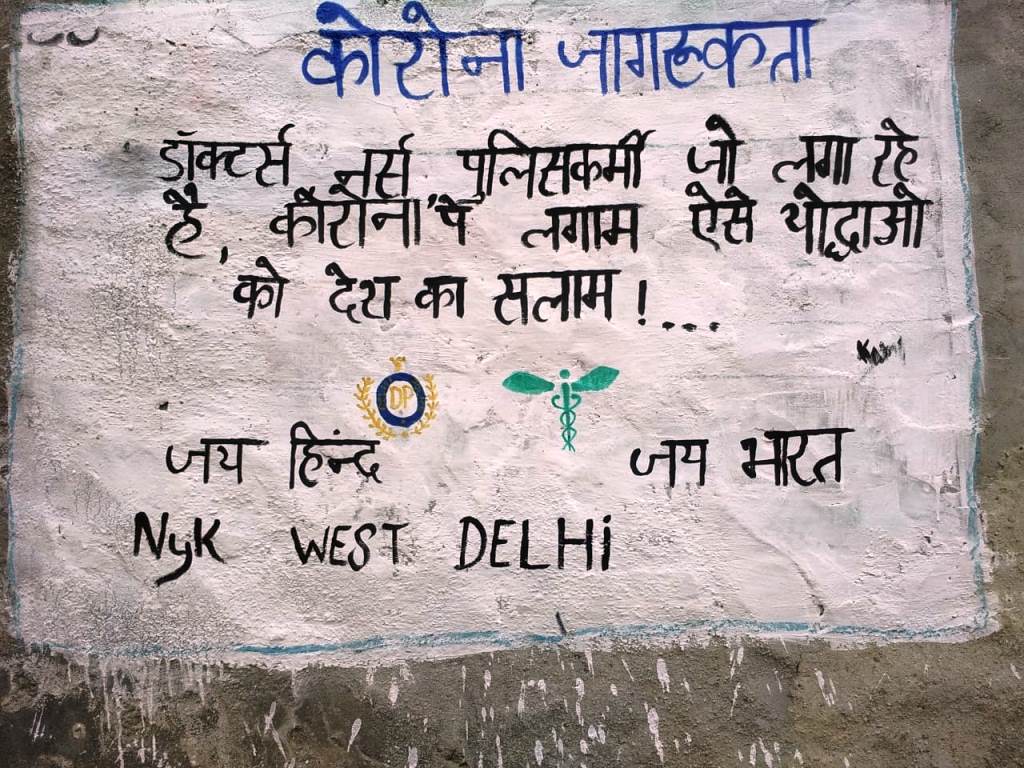 कोरोना जागरूकता
डॉक्टर्स नर्स पुलिसकर्मी जो लगा रहे
है, कोरोना पे लगाम ऐसे योद्धाओ
को देश का सलाम!...
DP
जय हिन्द जय भारत
NyK WEST DELHi